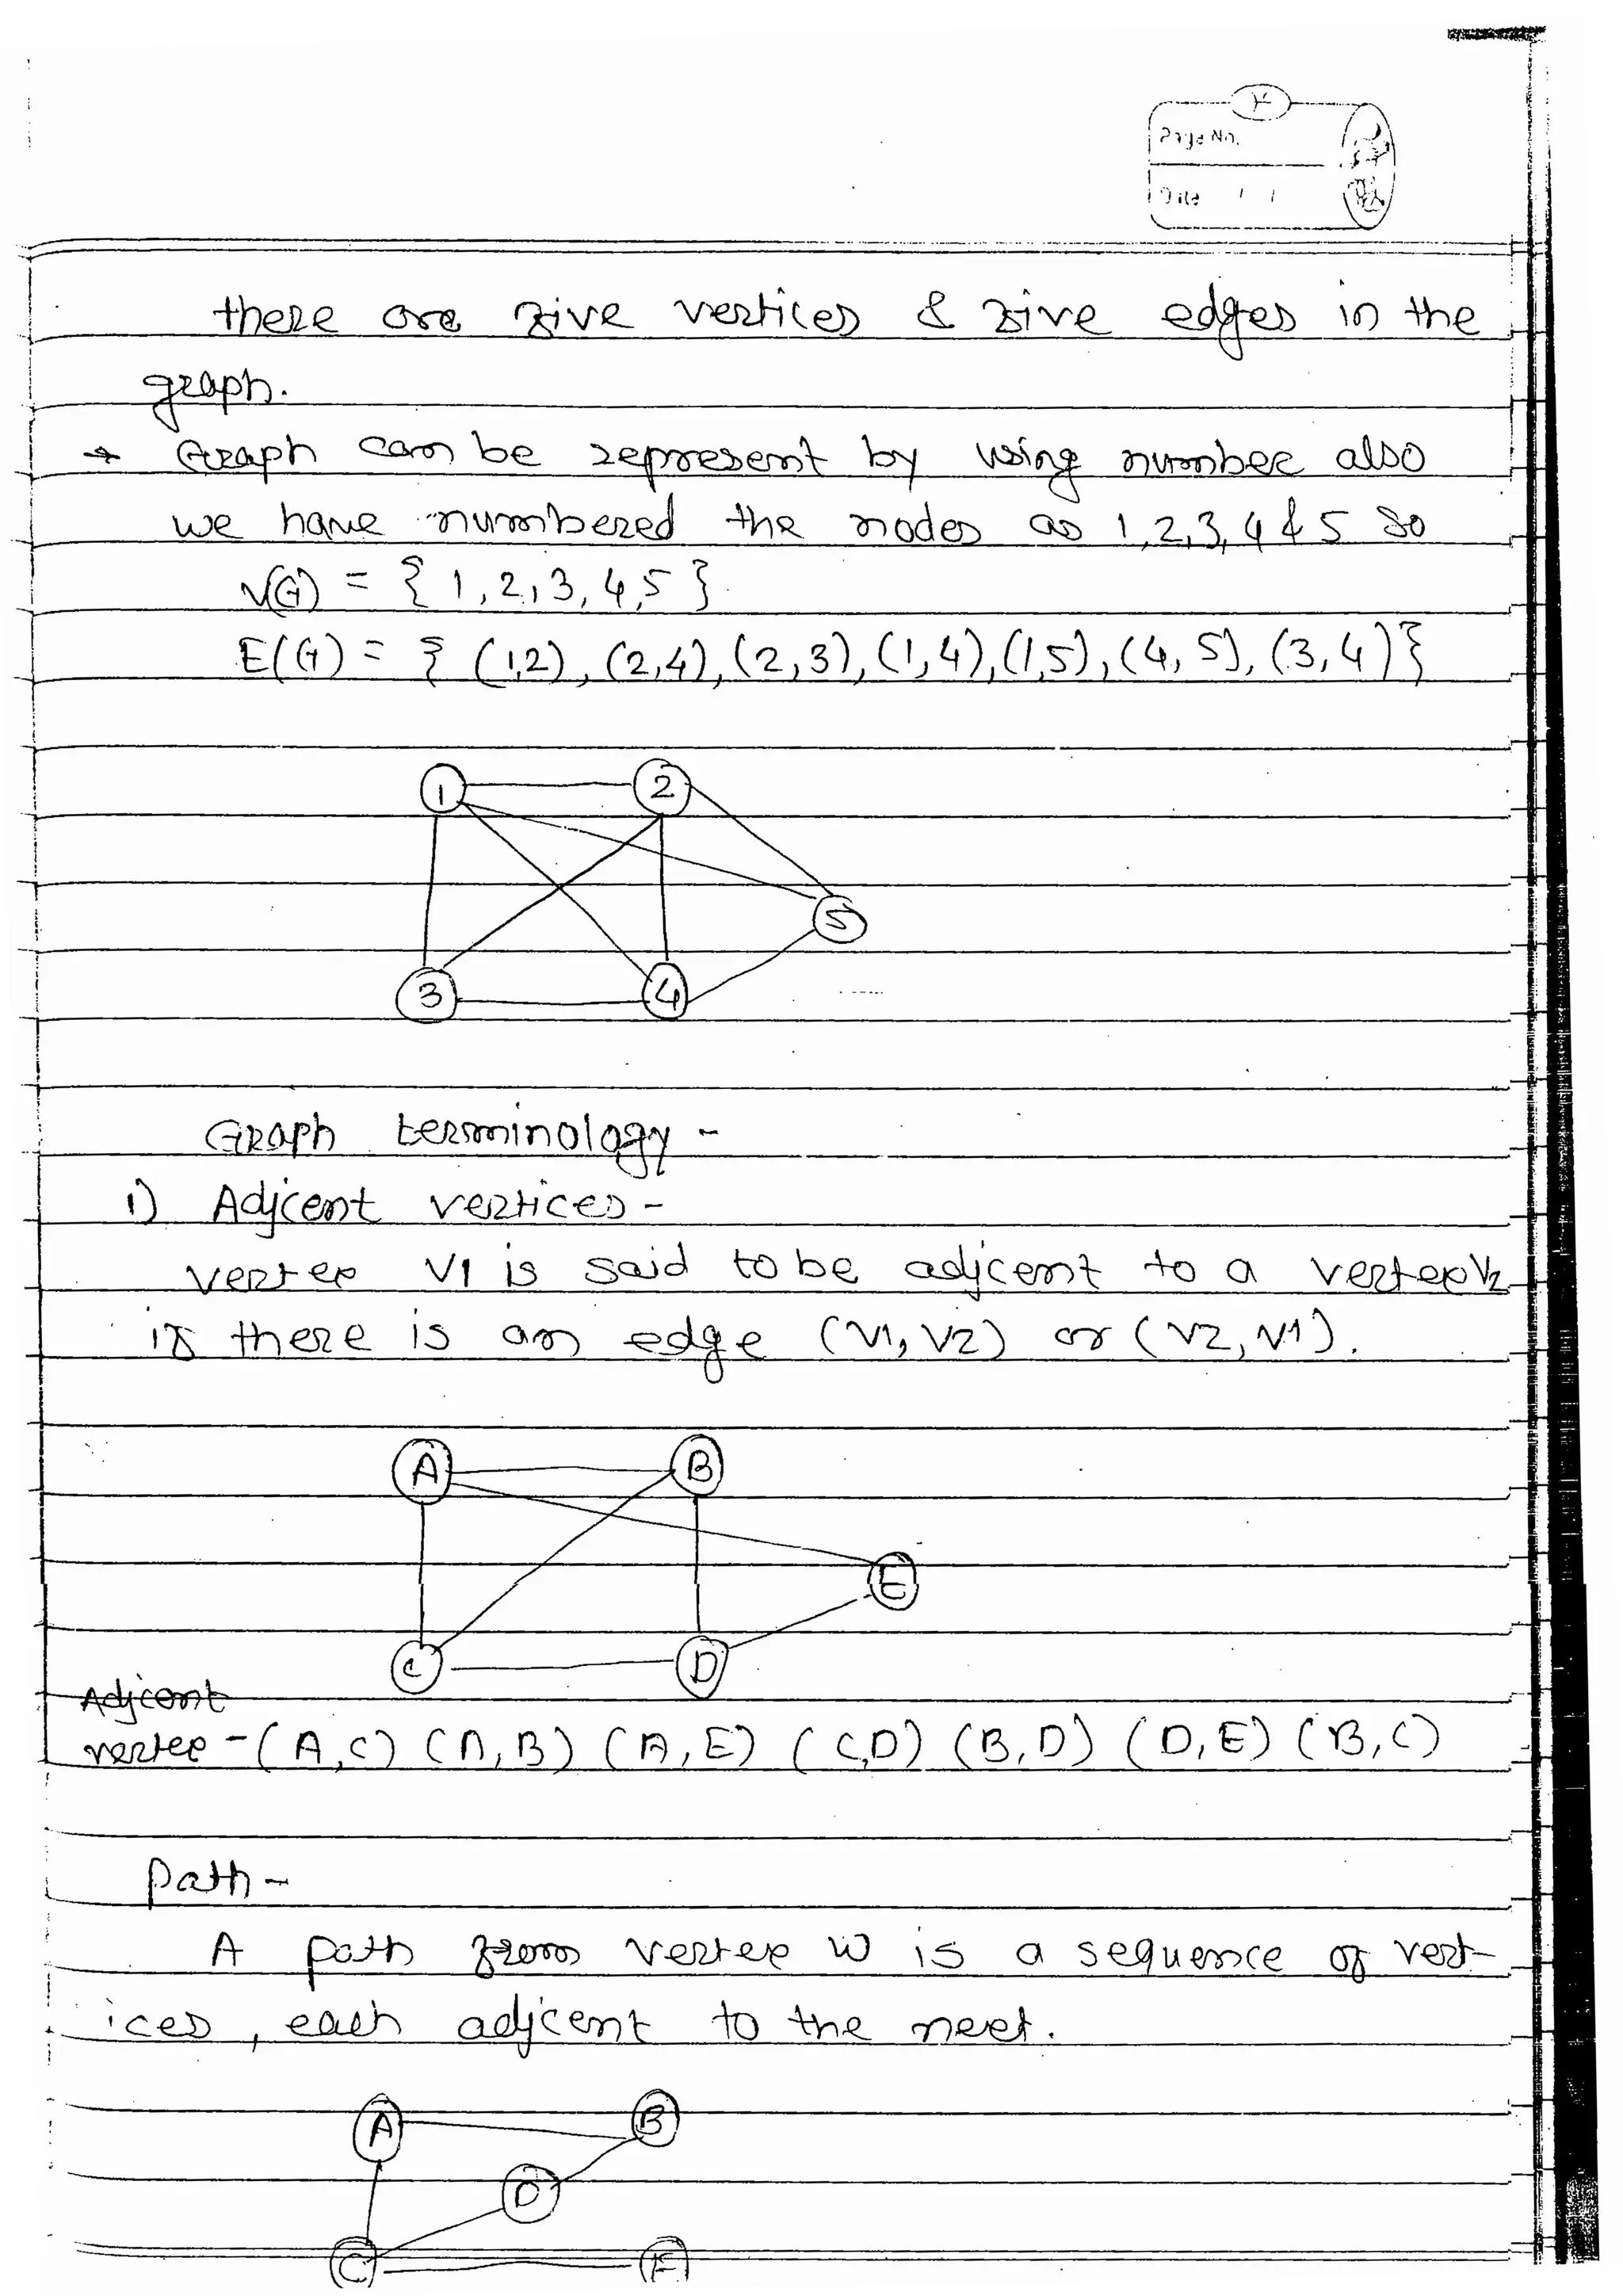 Page No.
Date / /
there are five vertices & five edges in the
graph.
→ Graph can be represent by using number also
we have numbered the nodes as 1,2,3,4 & 5 So
V(G) = { 1, 2, 3, 4, 5 }
E(G) = { (1,2), (2,4), (2,3), (1,4), (1,5), (4,5), (3,4) }
1 2
5
3 4
Graph terminology -
1) Adjcent vertices -
vertex V1 is said to be adjcent to a vertex V2
if there is an edge (V1, V2) or (V2, V1).
A B
E
C D
Adjcent
vertex - (A,C) (A,B) (A,E) (C,D) (B,D) (D,E) (B,C)
Path -
A path from vertex W is a sequence of vert-
ices, each adjcent to the next.
A B
D
C E